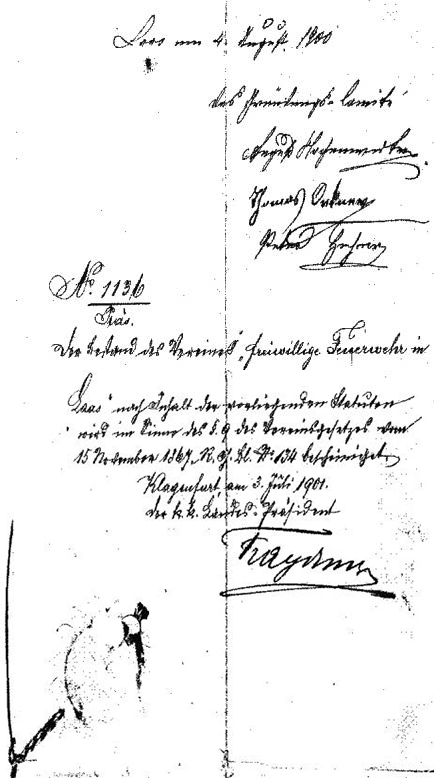 Laas am 4. August 1900
das Gründungs-Comité
August
Thomas Ortner
Peter
No. 1136
Präs.
Der Bestand des Vereines „freiwillige Feuerwehr in
Laas“ nach Inhalt der vorliegenden Statuten
wird im Sinne des §. 9 des Vereinsgesetzes vom
15 November 1867, R. G. Bl. No. 134 bescheinigt.
Klagenfurt, am 3. Juli 1901.
Der k. k. Landes-Präsident